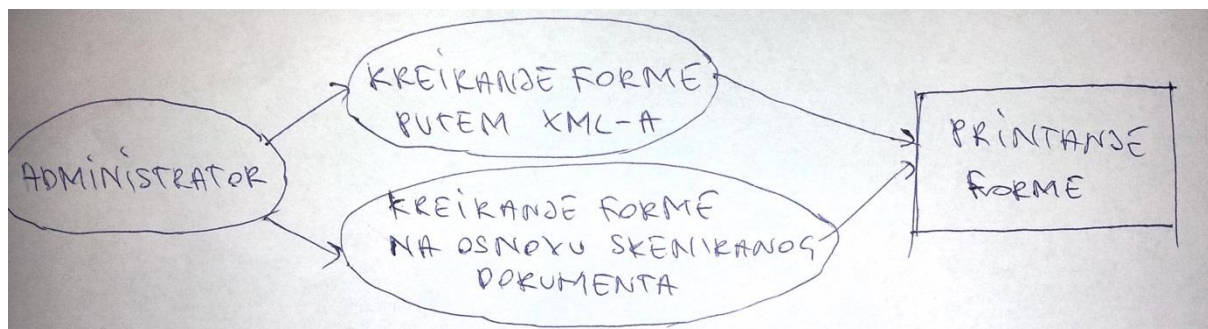 ADMINISTRATOR
KREIRANJE FORME
PUTEM XML-A
KREIRANJE FORME
NA OSNOVU SKENIRANOG
DOKUMENTA
PRINTANJE
FORME